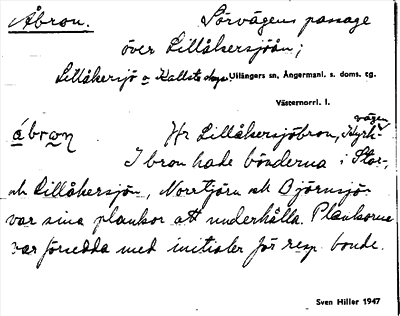 Åbron. Sörvägens passage
över Lillåkersjöån;
Lillåkersjö o Kallsta byar Ullångers sn, Ångermanl. s. doms. tg.
Västernorrl. l.
åbron Hr Lillåkersjöbron, Kyrkvägen
I bron hade bönderna i Stor-
och Lillåkersjö, Norrtjärn och Björnsjö
var sina plankor att underhålla. Plankorna
var försedda med initialer för resp. bonde.
Sven Hiller 1947